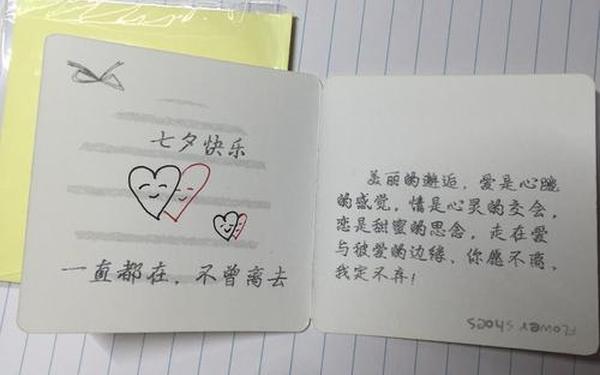 七夕快乐
一直都在，不曾离去
美丽的邂逅，爱是心醉
的感觉，情是心灵的交会，
恋是甜蜜的思念，走在爱
与被爱的边缘，你愿不离，
我定不弃！
FLOWER SHOES